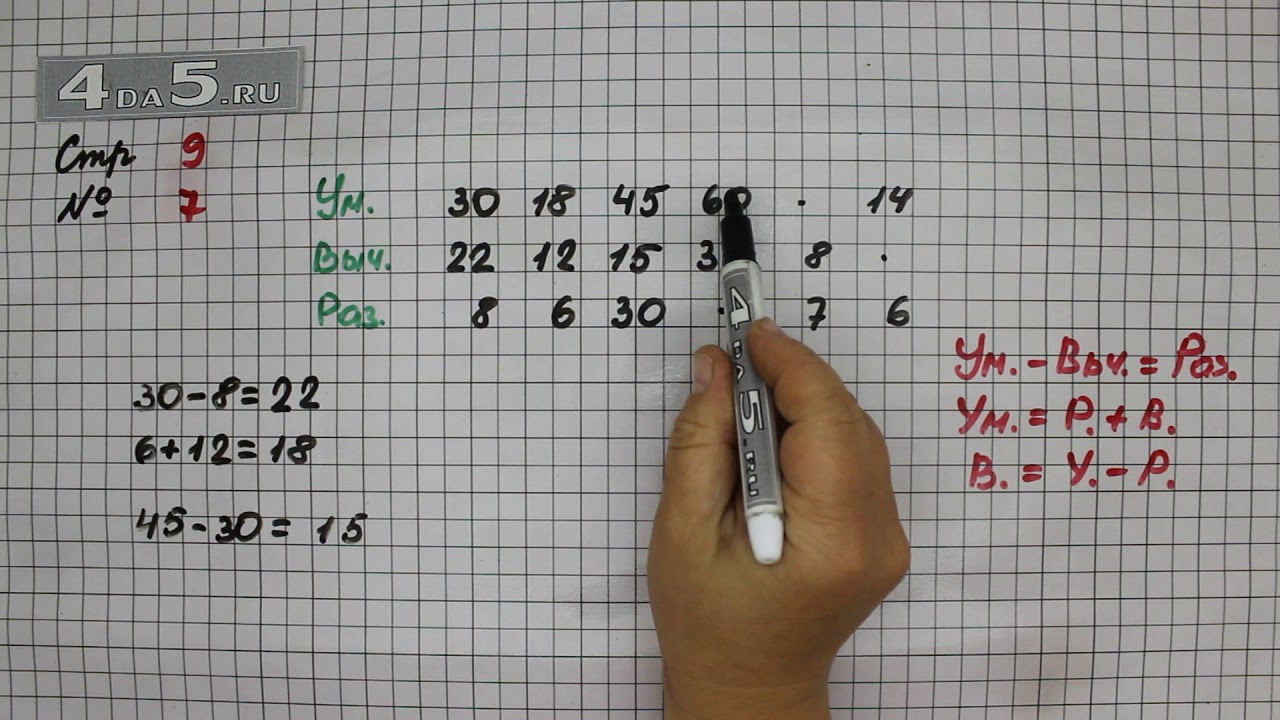 4DA5.RU
Стр 9
№ 7
Ум. 30 18 45 60 · 14
Выч. 22 12 15 8 ·
Раз. 8 6 30 · 7 6
30-8=22
6+12=18
45-30= 15
Ум. - Выч. = Раз.
Ум. = Р. + В.
В. = У. - Р.
4DA5.RU